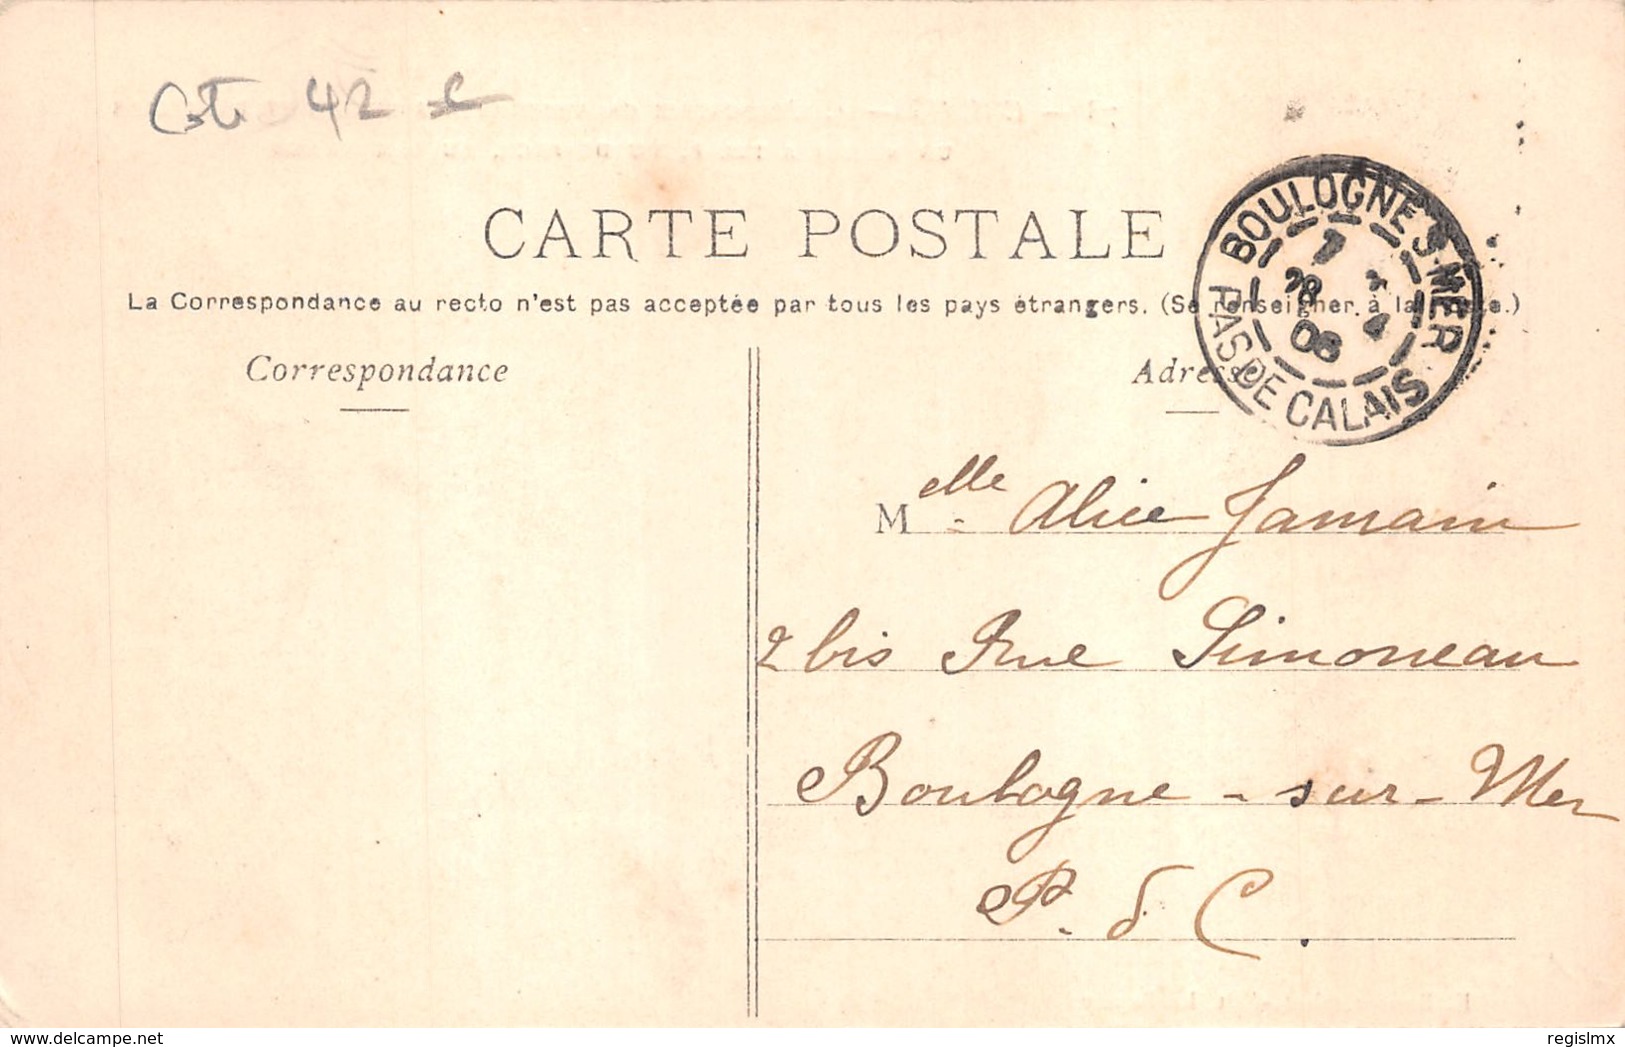 Cote 42 €
CARTE POSTALE
La Correspondance au recto n'est pas acceptée par tous les pays étrangers. (Se renseigner à la Poste.)
Correspondance
Adresse
BOULOGNE S-MER
7
28 4
06
PAS DE CALAIS
Melle Alice Jamain
2 bis Rue Simoneau
Boulogne-sur-Mer
P. d C.
delcampe.net
regislmx